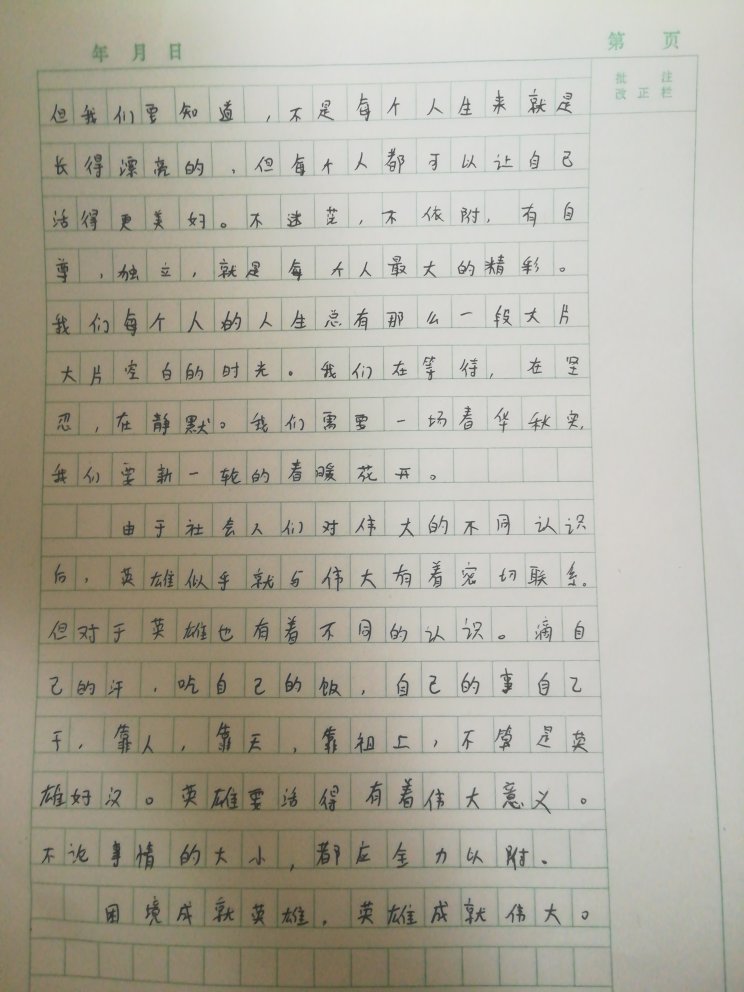 年 月 日 第 页
批 注
改 正 栏
但我们要知道，不是每个人生来就是
长得漂亮的，但每个人都可以让自己
活得更美好。不迷茫，不依附，有自
尊，独立，就是每个人最大的精彩。
我们每个人的人生总有那么一段大片
大片空白的时光。我们在等待，在坚
忍，在静默。我们需要一场春华秋实，
我们要新一轮的春暖花开。
由于社会人们对伟大的不同认识
后，英雄似乎就与伟大有着密切联系。
但对于英雄也有着不同的认识。滴自
己的汗，吃自己的饭，自己的事自己
干，靠人，靠天，靠祖上，不算是英
雄好汉。英雄要活得有着伟大意义。
不论事情的大小，都应全力以附。
困境成就英雄，英雄成就伟大。